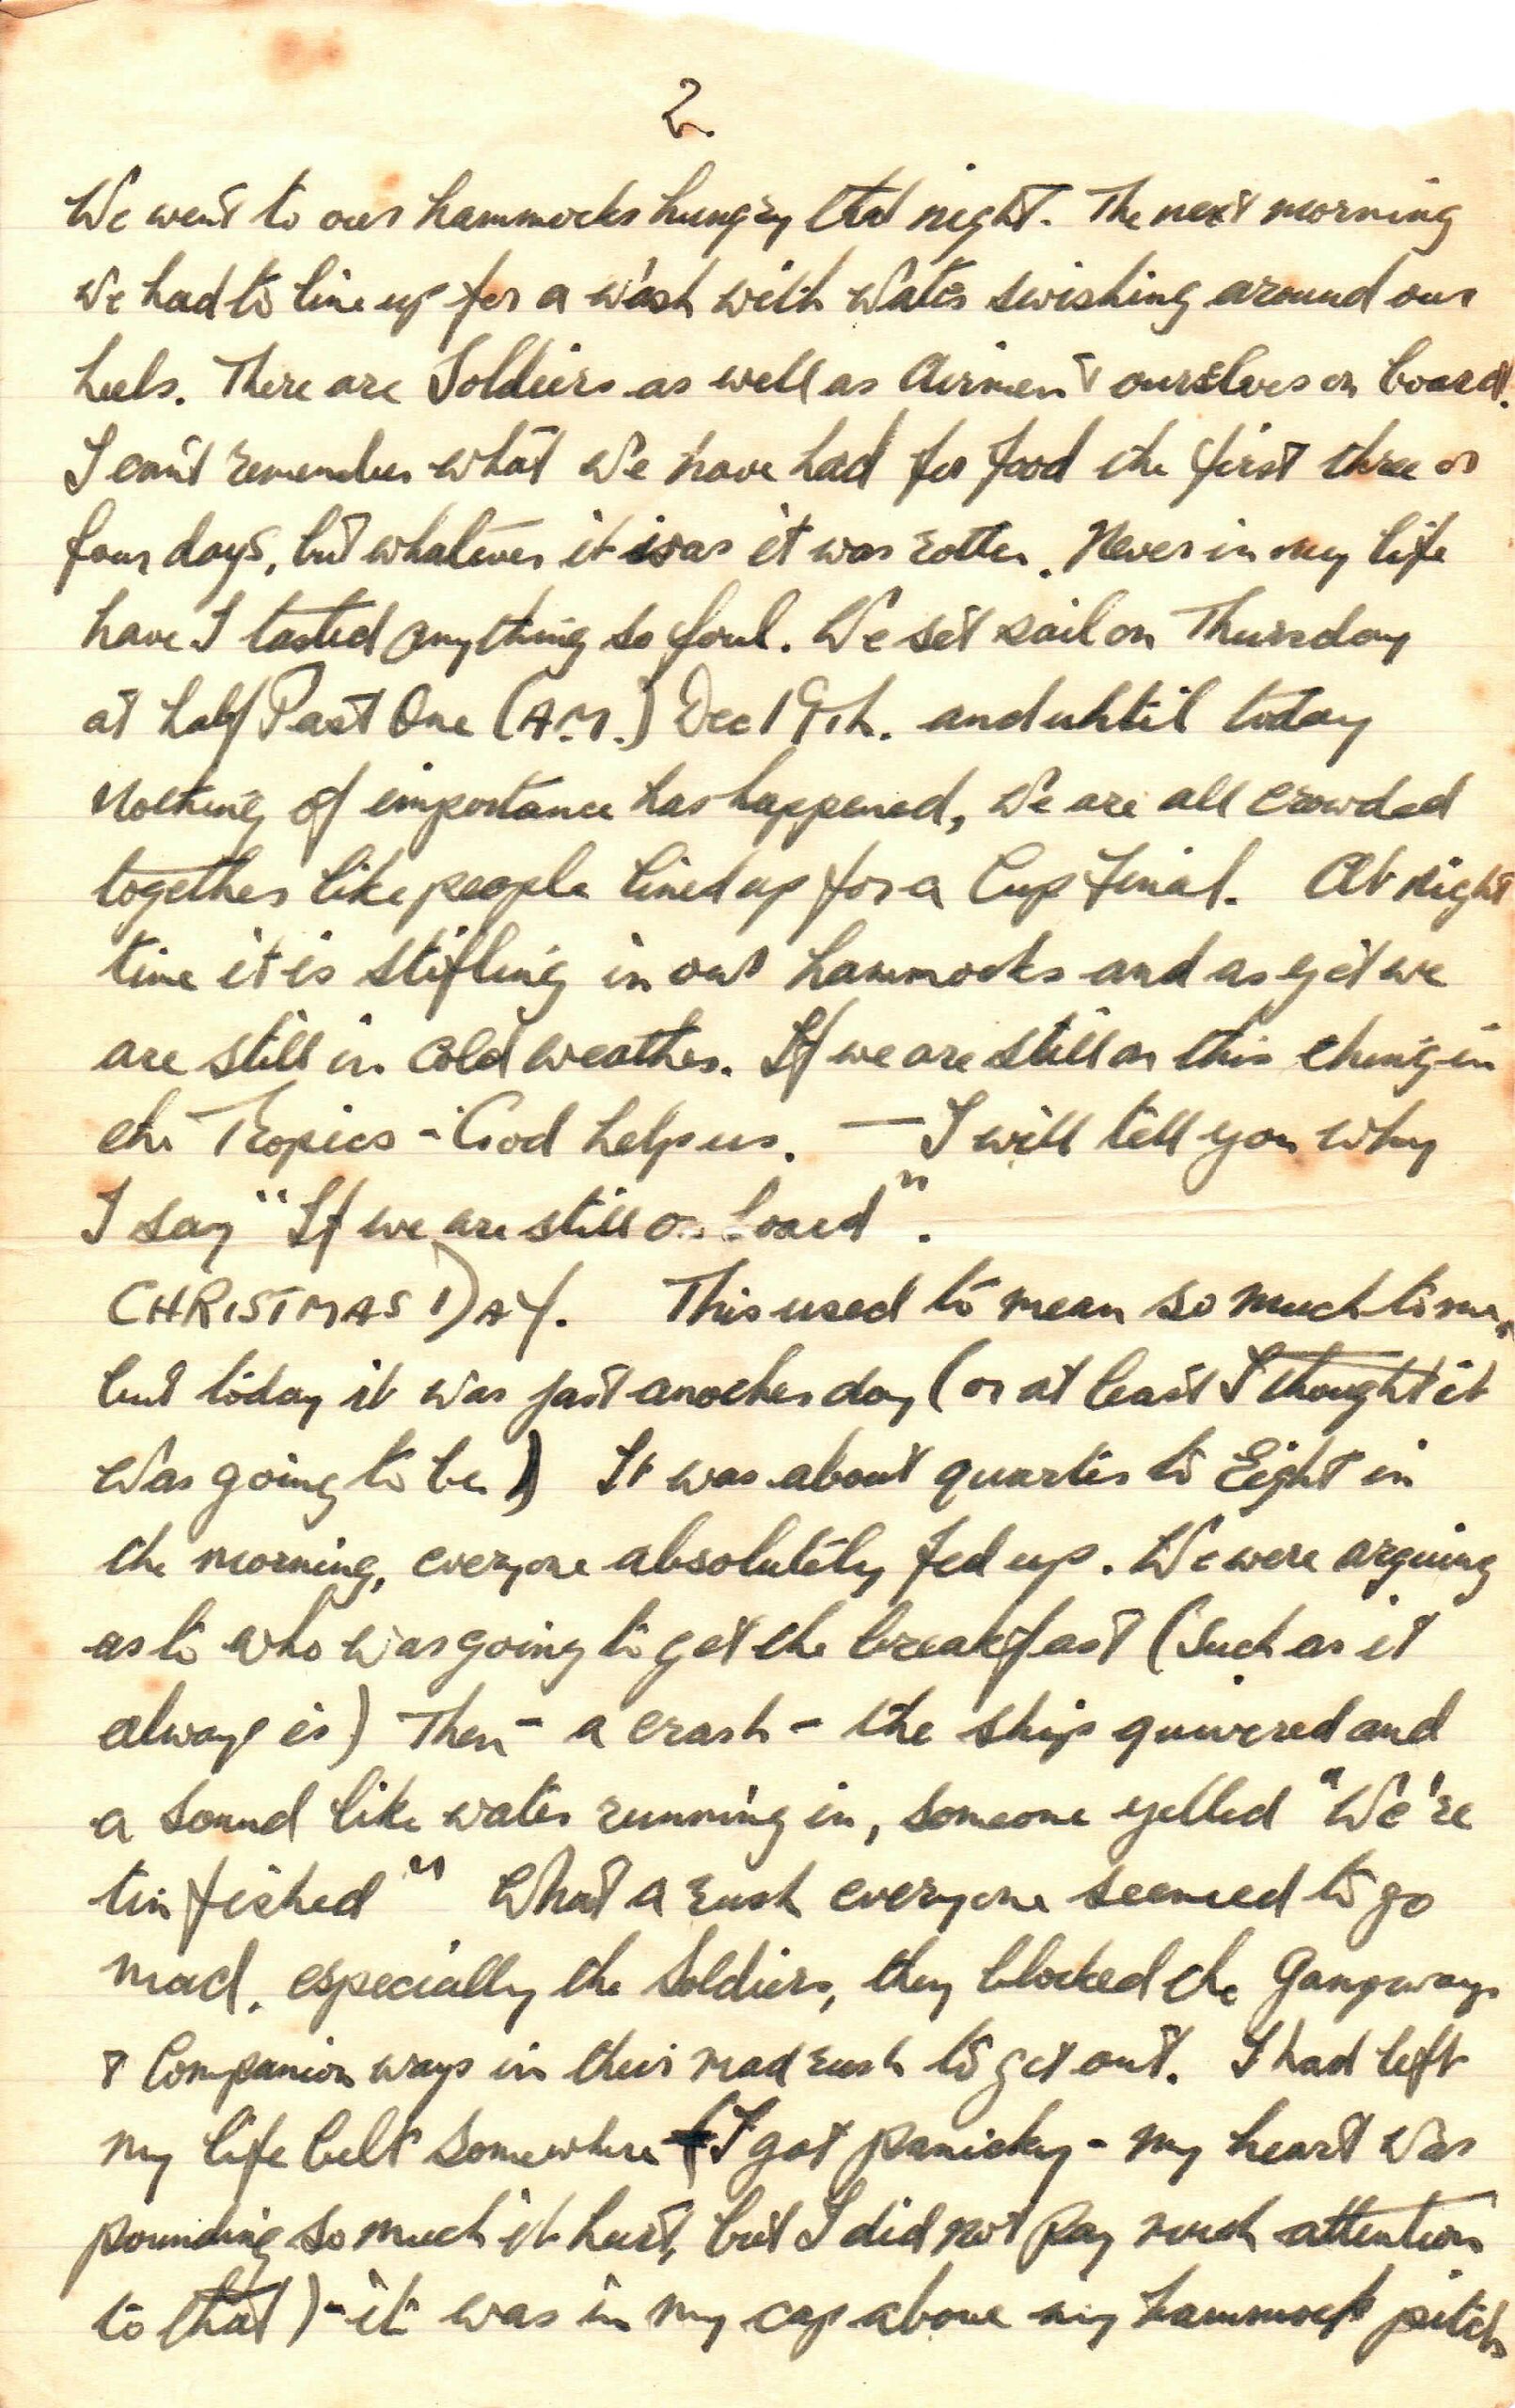 2.
We went to our hammocks hungry that night. The next morning
we had to line up for a wash with water swishing around our
heels. There are Soldiers as well as Airmen & ourselves on board.
I can't remember what we have had for food the first three or
four days, but whatever it was it was rotten. Never in my life
have I tasted anything so foul. We set sail on Thursday
at half Past One (A.M.) Dec 19th. and until today
nothing of importance has happened, We are all crowded
together like people lined up for a Cup Final. At night
time it is stifling in our hammocks and as yet we
are still in cold weather. If we are still on this thing in
the Tropics - God help us. — I will tell you why
I say "If we are still on board".
CHRISTMAS DAY. This used to mean so much to me,
but today it was just another day (or at least I thought it
was going to be) It was about quarter to Eight in
the morning, everyone absolutely fed up. We were arguing
as to who was going to get the breakfast (Such as it
always is) Then - a crash - the ship quivered and
a sound like water running in, someone yelled "We're
tin fished" What a rush everyone seemed to go
mad, especially the Soldiers, they blocked the Gangways
& Companion ways in their mad rush to get out. I had left
my life belt somewhere (I got panicky - my heart was
pounding so much it hurt, but I did not pay much attention
to that) - it was in my cap above my hammock pitch